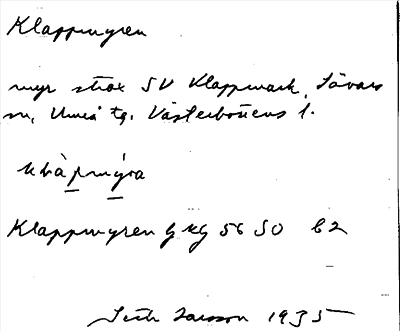 Klappmyren
myr strax SV Klappmark, Sävars
sn, Umeå tg. Västerbottens l.
Klappmyren GKG 56 SO C2
Larsson 1935